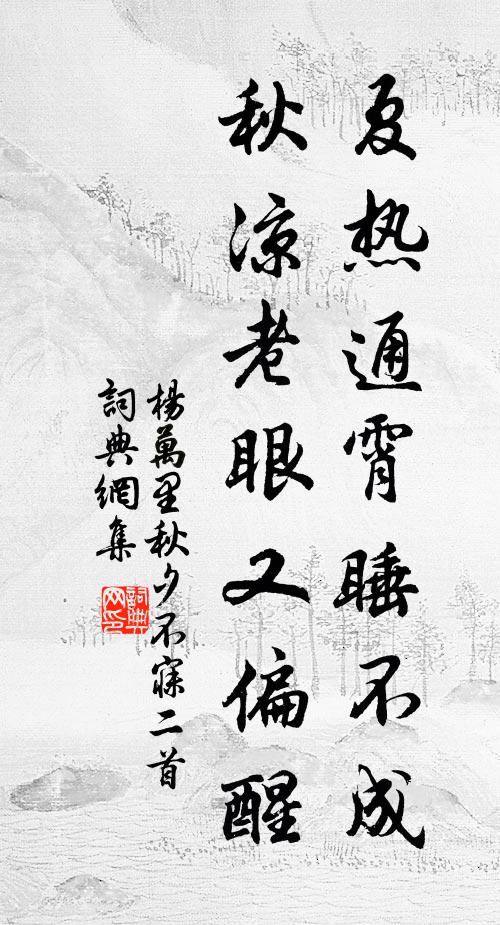 夏热通霄睡不成
秋凉老眼又偏醒
楊萬里秋夕不寐二首
詞典網集
詞典网印